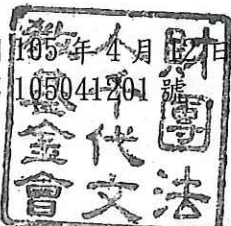 105 年 4 月 12 日
105041201 號
財團法
人代文
教基金會